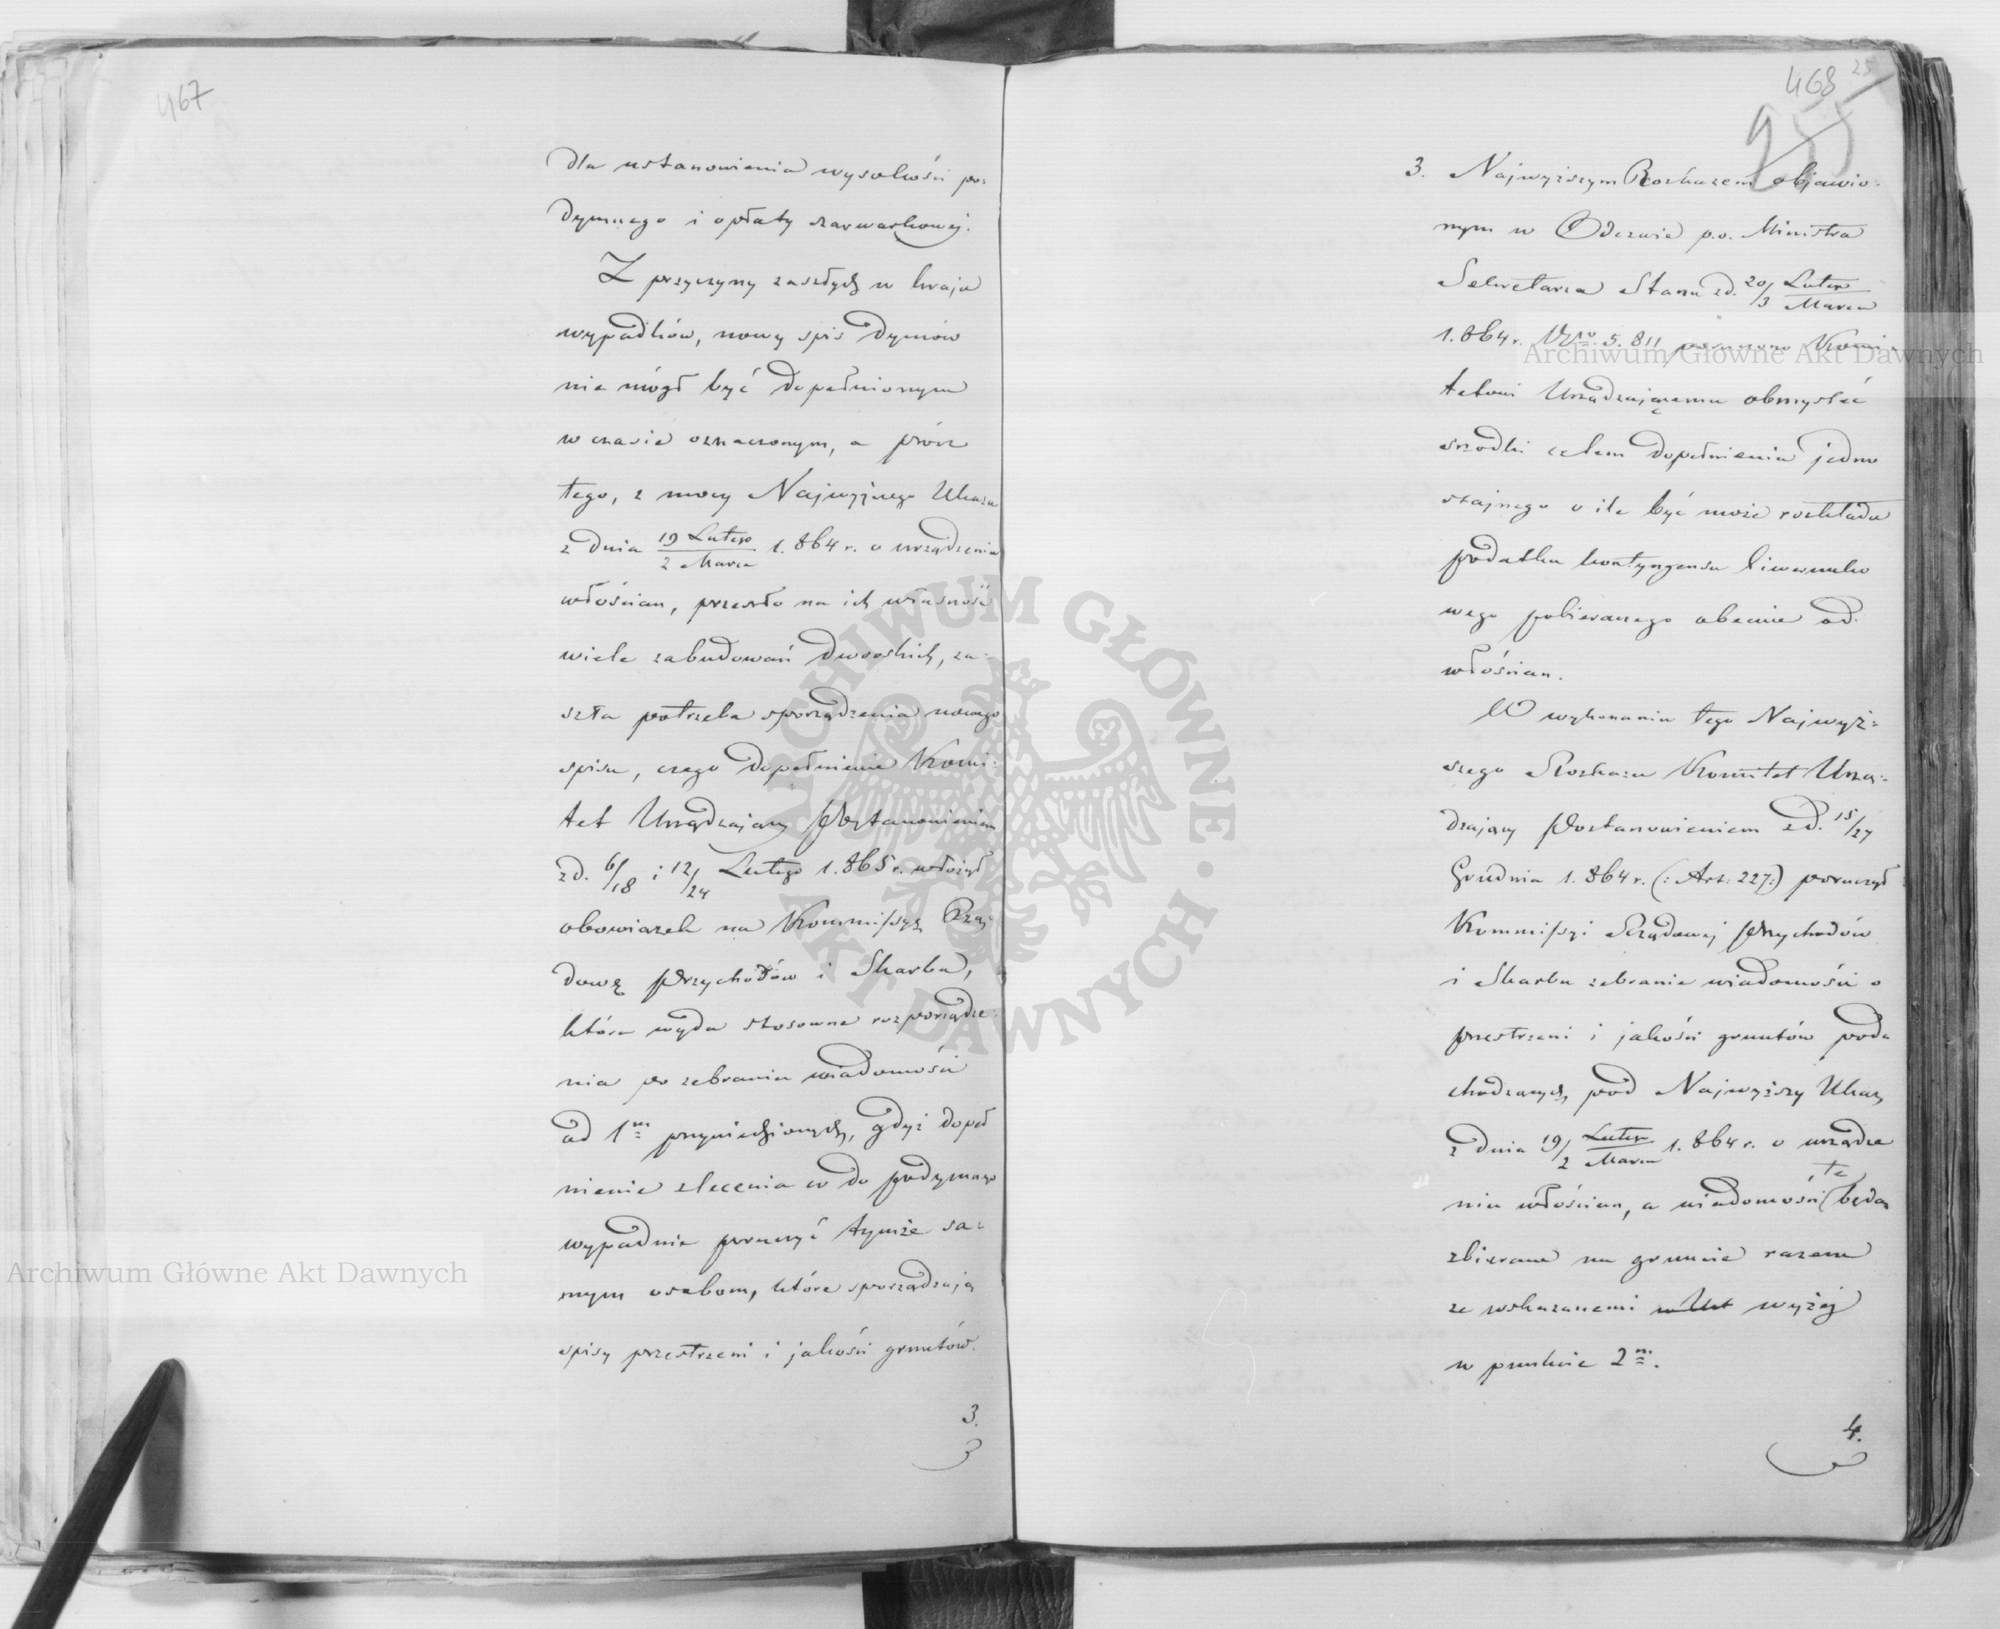 467
dla ustanowienia wysokości po-
dymnego i opłaty szarwarkowej.
Z przyczyny zaszłych w kraju
wypadków, nowy spis dymów
nie mógł być dopełnionym
w czasie oznaczonym, a prócz
tego, z mocy Najwyższego Ukazu
z dnia 19 Lutego / 2 Marca 1.864 r. o urządzeniu
włościan, przeszło na ich własność
wiele zabudowań dworskich, za-
szła potrzeba sporządzenia nowego
spisu, czego dopełnienie Komi-
tet Urządzający Postanowieniem
z d. 6/18 i 12/24 Lutego 1.865 r. włożył
obowiązek na Kommissyę Rzą-
dową Przychodów i Skarbu,
która wyda stosowne rozporządze-
nia po zebraniu wiadomości
ad 1m przywiedzionych, gdyż dopeł
nienie zlecenia co do podymnego
wypadnie poruczyć tymże sa-
mym osobom, które sporządzają
spisy przestrzeni i jakości gruntów.
3.
468 25
3. Najwyższym Rozkazem objawio-
nym w Odezwie p.o. Ministra
Sekretarza Stanu z d. 20/3 Lutego / Marca
1.864 r. No 5.811 poruczono Komi-
tetowi Urządzającemu obmyśleć
srodki celem dopełnienia jedno
stajnego o ile być może rozkładu
podatku kontyngensu liwerunko
wego pobieranego obecnie od
włościan.
W wykonaniu tego Najwyż-
szego Rozkazu Komitet Urzą-
dzający Postanowieniem z d. 15/27
Grudnia 1.864 r. (: Art: 227:) poruczył
Kommissyi Rządowej Przychodów
i Skarbu zebranie wiadomości o
przestrzeni i jakości gruntów pod
chodzących pod Najwyższy Ukaz
z dnia 19/2 Lutego / Marca 1.864 r. o urządze
niu włościan, a wiadomości te będą
zbierane na gruncie razem
ze wskazanemi wyżej
w punkcie 2m.
4.
Archiwum Główne Akt Dawnych
Archiwum Główne Akt Dawnych
ARCHIWUM GŁÓWNE · AKT DAWNYCH ·